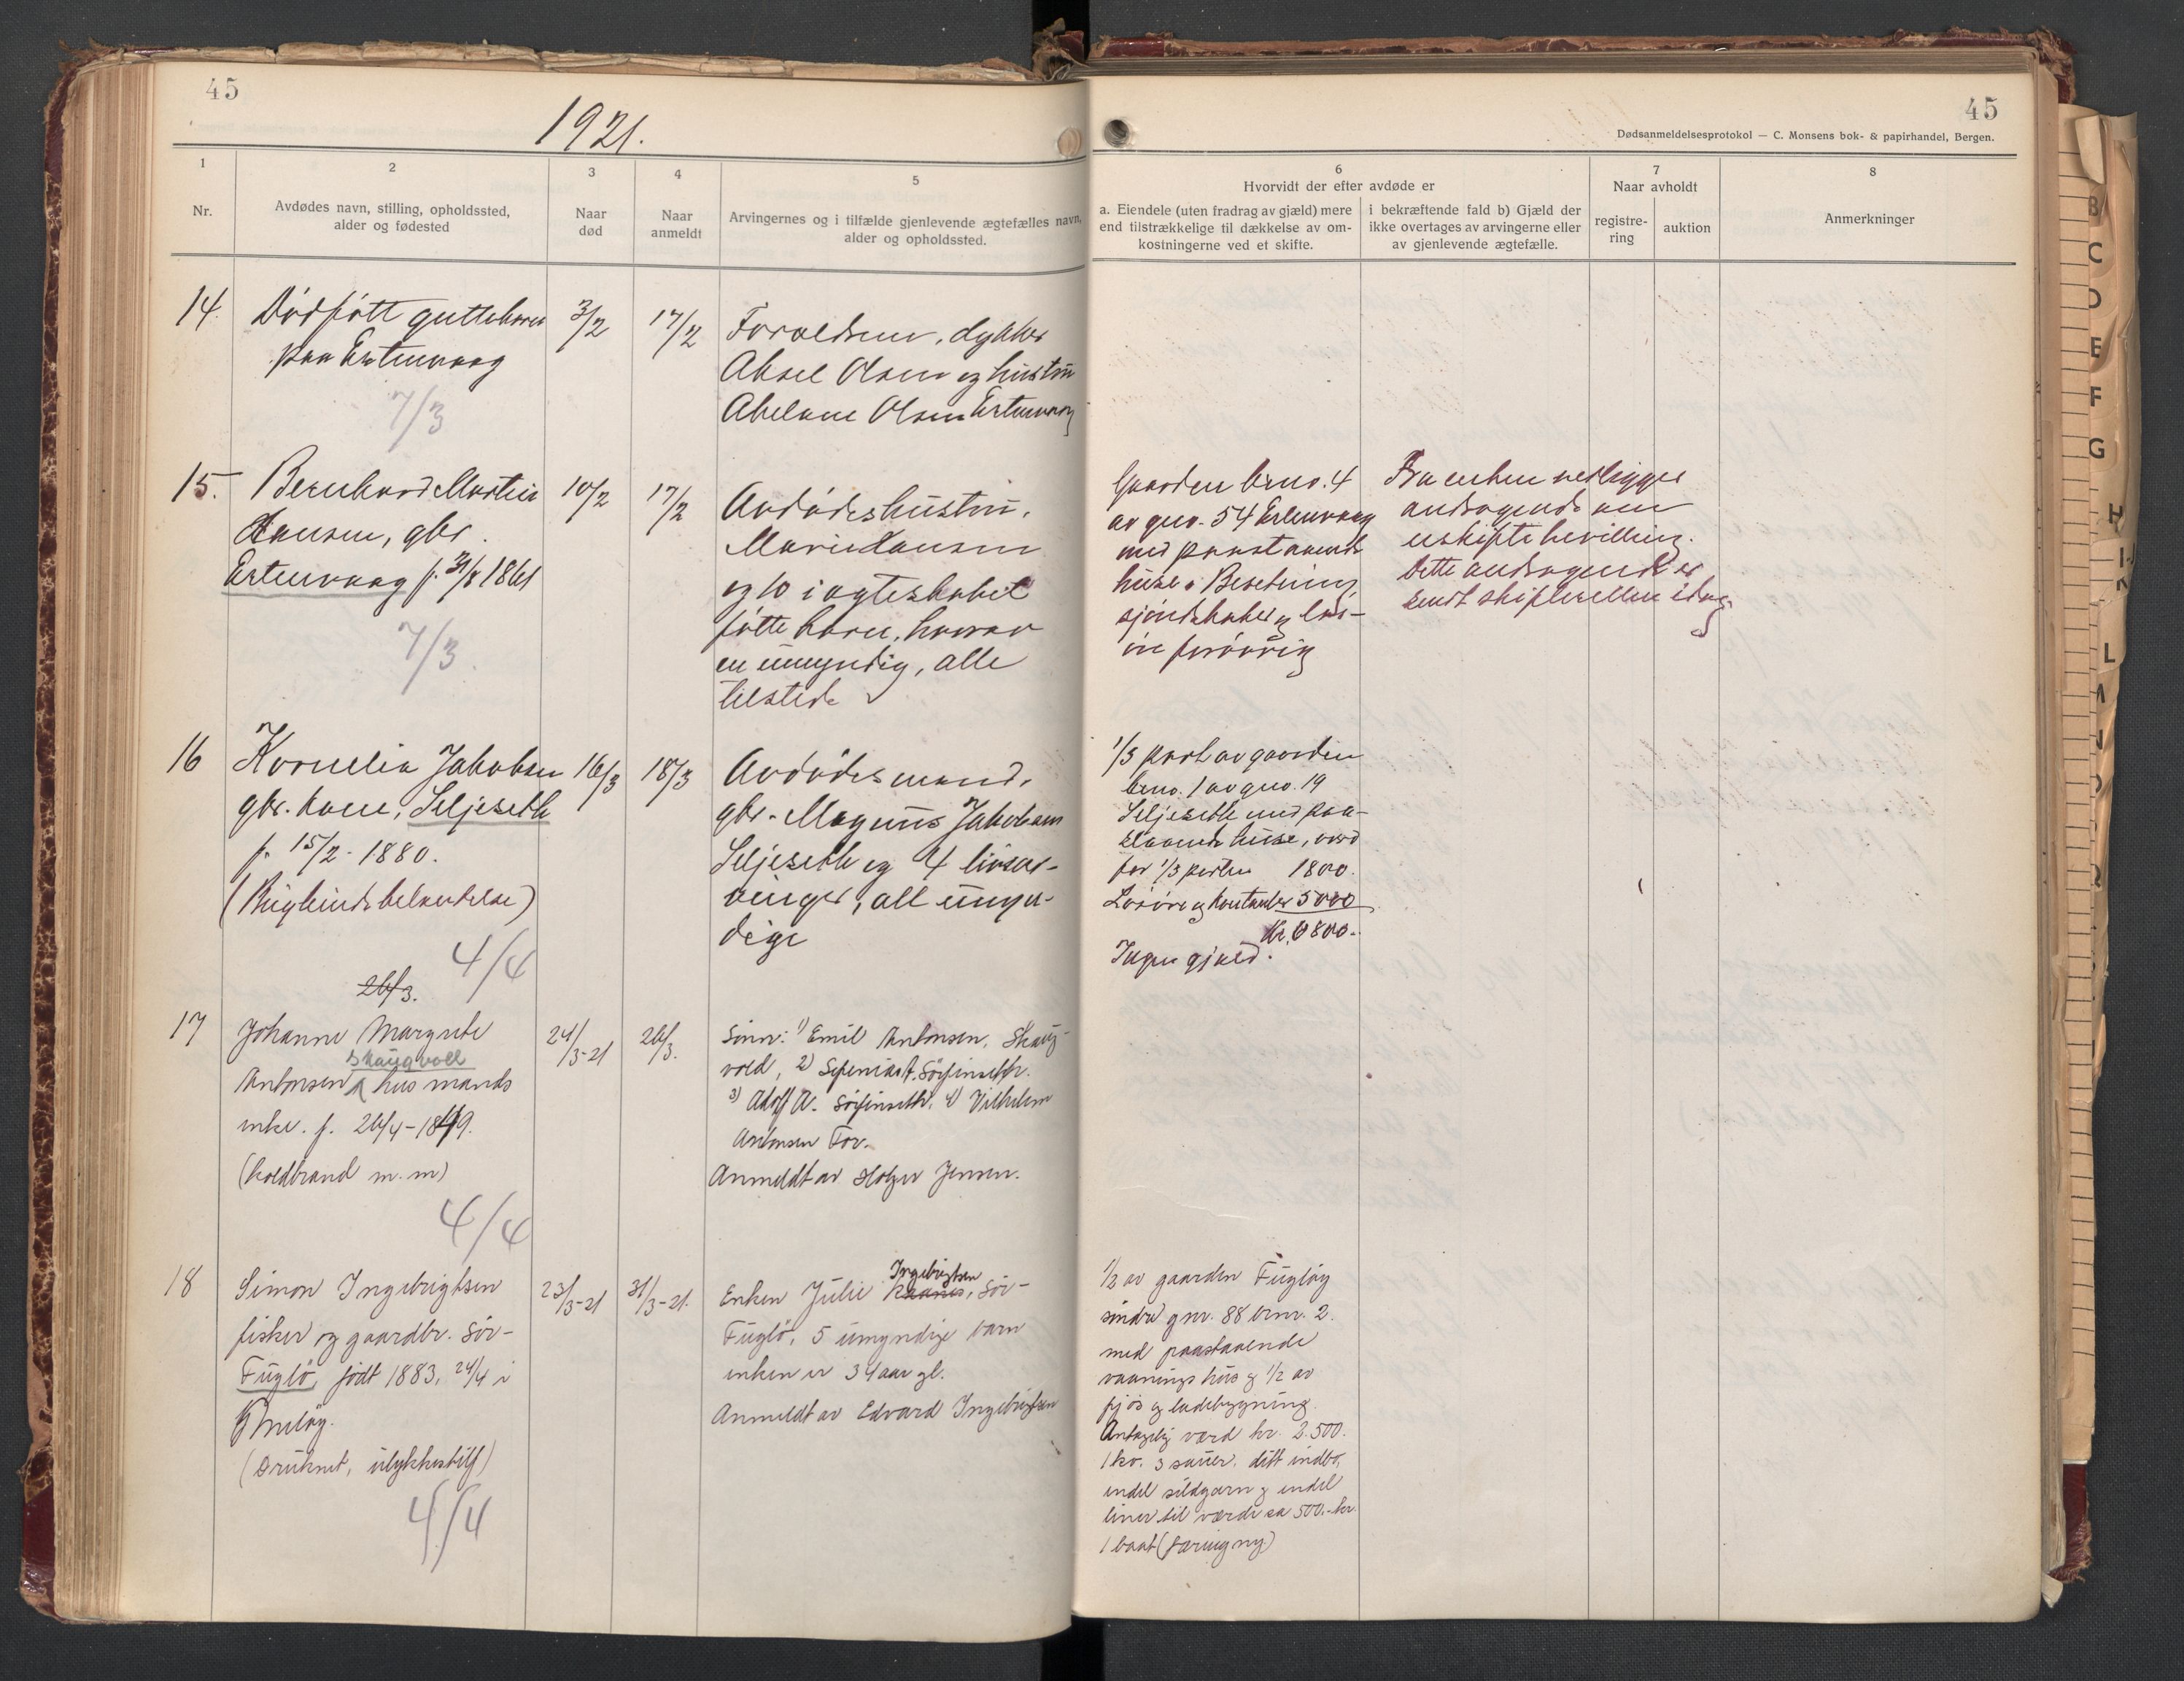 45
1921.
1
Nr.
2
Avdødes navn, stilling, opholdssted,
alder og fødested
3
Naar
død
4
Naar
anmeldt
5
Arvingernes og i tilfælde gjenlevende ægtefælles navn,
alder og opholdssted.
14.
Dödfött guttebarn
paa Ertenvaag
7/3
3/2
17/2
Forældrene, dykker
Aksel Olsen og hustru
Abelone Olsen Ertenvaag
15.
Bernhard Martin
Hansen, gbr.
Ertenvaag f. 31/8 1861
7/3.
10/2
17/2
Avdödes hustru,
Marie Hansen
og 10 i egteskabet
fötte barn, hvorav
en umyndig, alle
tilstede
16
Kornelia Jakobsen
gbr. kone, Seljeseth
f. 15/2 - 1880.
(Ryghindebetændelse)
4/4
16/3
18/3
Avdödes mand,
gbr. Magnus Jakobsen
Seljeseth og 4 livsar-
vinger, all umyn-
dige
26/3.
17
Johanne Margrete
Skaugvoll
Antonsen hus mands
enke. f. 26/4-1849.
(koldbrand m.m)
4/4
24/3-21
26/3.
Sönner: 1) Emil Antonsen, Skaug-
vold, 2) Sefenias A. Sörfinseth.
3) Adolf A. Sörfinseth, 4) Vilhelm
Antonsen For.
Anmeldt av Holger Jensen.
18
Simon Ingebrigtsen
fisker og gaardbr. Sör-
Fuglö, födt 1883, 24/4 i
(Druknet, ulykkestilf)
4/4
23/3-21
31/3-21.
Ingebrigtsen
Enken Julie Hanes, Sör-
Fuglö, 5 umyndige barn
enken er 34 aar gl.
Anmeldt av Edvard Ingebrigtsen
45
Dødsanmeldelsesprotokol — C. Monsens bok- & papirhandel, Bergen.
6
Hvorvidt der efter avdøde er
a. Eiendele (uten fradrag av gjæld) mere
end tilstrækkelige til dækkelse av om-
kostningerne ved et skifte.
i bekræftende fald b) Gjæld der
ikke overtages av arvingerne eller
av gjenlevende ægtefælle.
7
Naar avholdt
registre-
ring
auktion
8
Anmerkninger
Gaarden brno. 4
av gno. 54 Ertenvaag
med paastaaende
huse. Besetning
sjöredskaber og lös-
öre forövrig
Fra enken vedligger
andragende om
uskiftebevilling.
Dette andragende er
sendt skifteretten idag
1/3 part av gaarden
brno. 1 av gno. 19
Seljeseth med paa-
staaende huse, værd
for 1/3 parten 1800.
Lösöre og kontanter 5000
Kr. 6800.
Ingen gjæld.
1/2 av gaarden Fuglöy
söndre gnr. 88 brnr. 2.
med paastaaende
vaaningshus og 1/2 av
fjös og ladebygning.
Antagelig værd kr. 2.500.
1 ko. 3 sauer. ditt indbo,
endel sildgarn og endel
liner til værdi ca 500.- kr.
1 baat (færing ny)
B
C
D
E
F
G
H
L